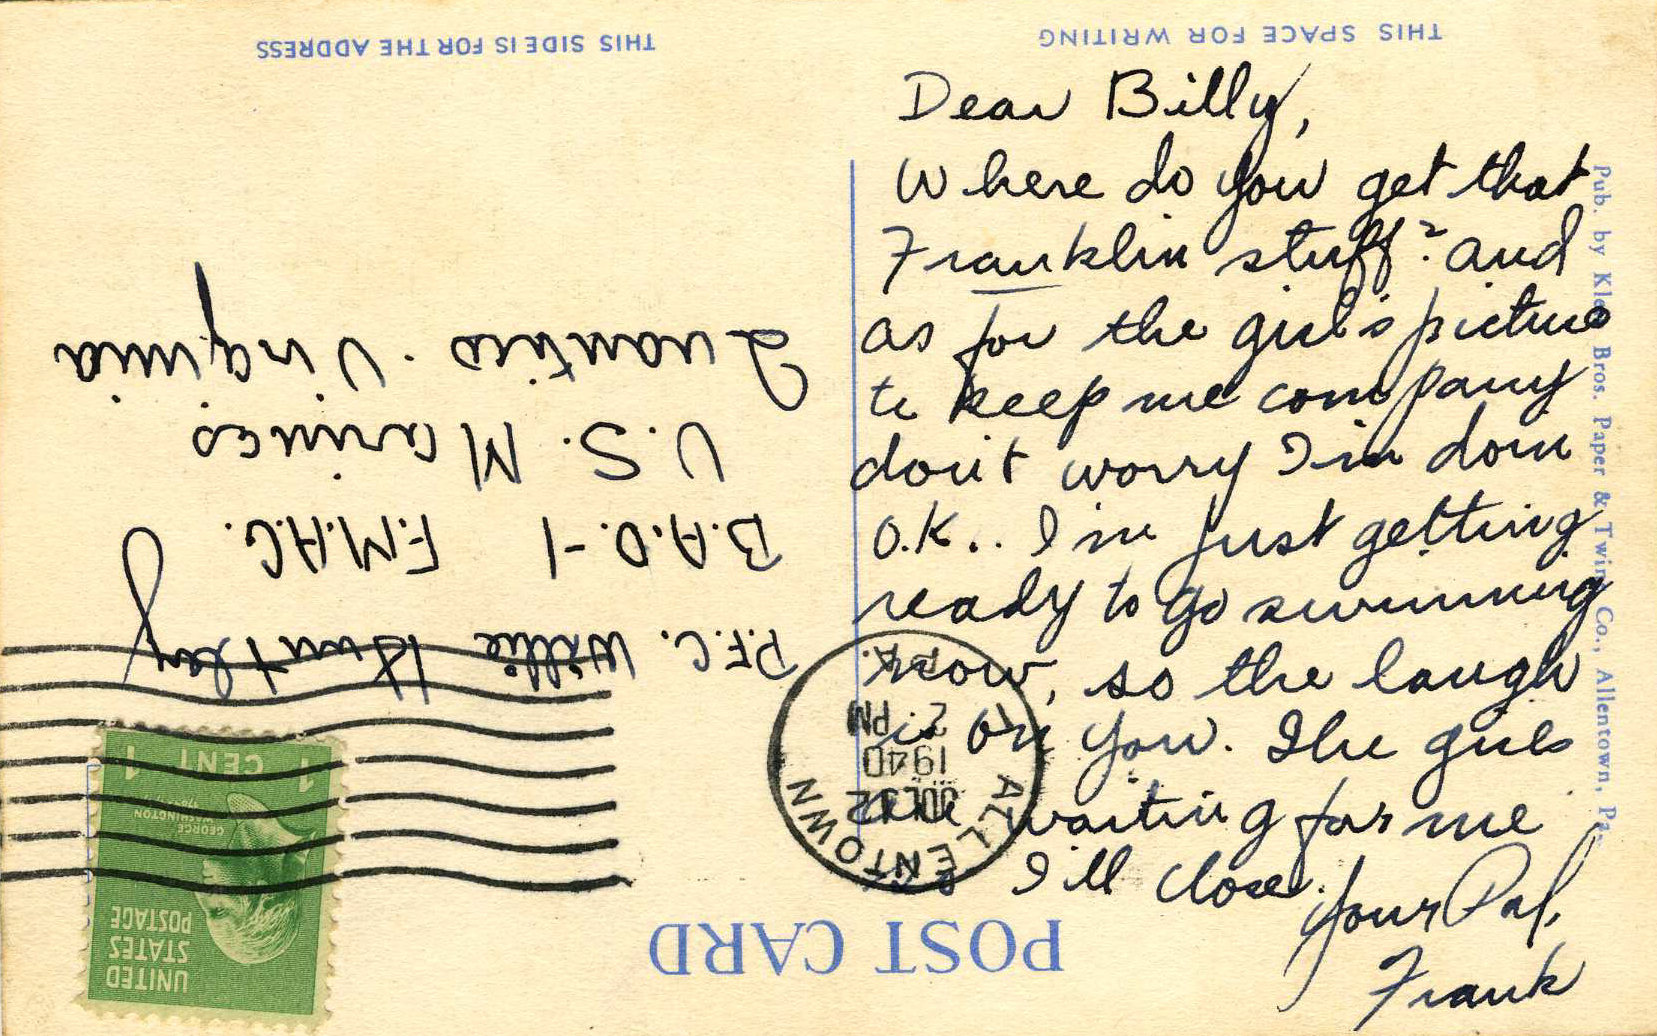 THIS SPACE FOR WRITING
Dear Billy,
Where do you get that
Franklin stuff? and
as for the girl's picture
to keep me company
don't worry I'm doin
O.K.. I'm just getting
ready to go swimming
now, so the laugh
is on you. The girls
are waiting for me
& I'll close.
Your Pal,
Frank
Pub. by Klos Bros. Paper & Twine Co., Allentown, Pa.
POST CARD
UNITED
STATES
POSTAGE
GEORGE
WASHINGTON
1 CENT 1
ALLENTOWN
PA.
JUL 12
2 PM
1940
P.F.C. Willie Huntley
B.A.D.-1 F.M.A.G.
U.S. Marines
Quantico. Virginia
THIS SIDE IS FOR THE ADDRESS